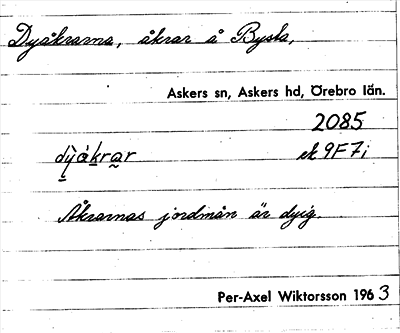 Dyåkrarna, åkrar å Bysta,
Askers sn, Askers hd, Örebro län.
2085
dỳåkrar ek 9F7i
Åkrarnas jordmån är dyig.
Per-Axel Wiktorsson 1963